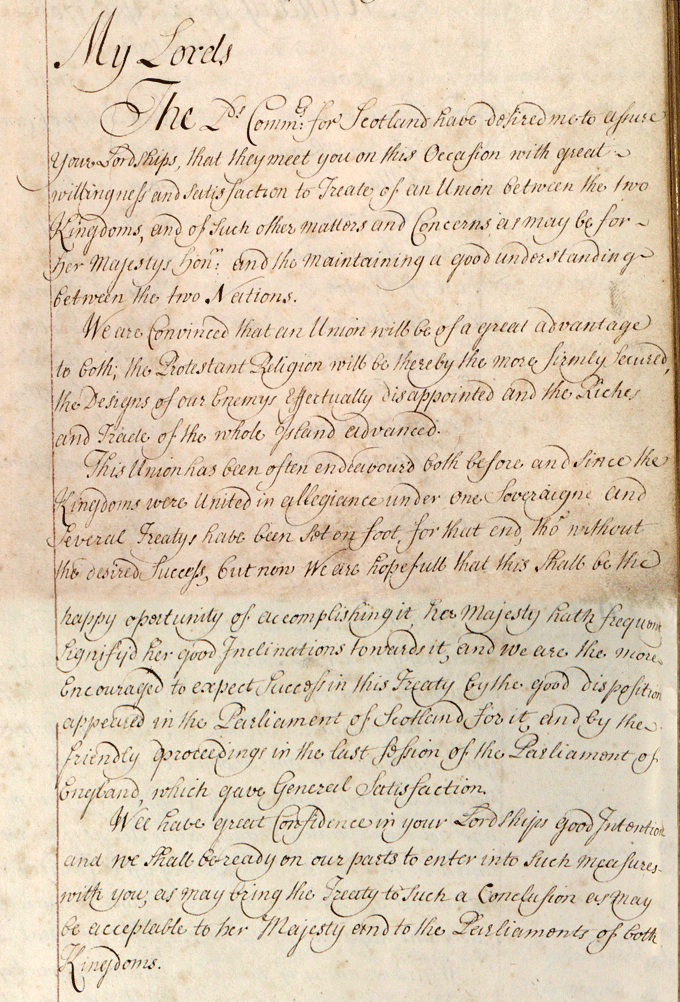 My Lords
The Lds Commrs: for Scotland have desired me to assure
Your Lordships, that they meet you on this Occasion with great
willingness and satisfaction to Treate of an Union between the two
Kingdoms, and of such other matters and Concerns as may be for
her Majestys honr: and the maintaining a good understanding
between the two Nations.
We are Convinced that an Union will be of a great advantage
to both; the Protestant Religion will be thereby the more firmly Secured,
the Designs of our Enemys Effectually disappointed and the Riches
and Trade of the whole Island advanced.
This Union has been often endeavourd both before and since the
Kingdoms were United in allegiance under one Soveraigne and
several Treatys have been set on foot, for that end, tho' without
the desired Success, but now We are hopefull that this shall be the
happy oportunity of accomplishing it, her Majesty hath frequent
Signifyd her good Inclinations towards it, and we are the more
Encouraged to expect Success in this Treaty by the good disposition
appeared in the Parliament of Scotland for it, and by the
friendly proceedings in the last session of the Parliament of
England, which gave General Satisfaction.
Wee have great Confidence in your Lordships good Intention
and we shall be ready on our parts to enter into Such measures
with you, as may bring the Treaty to Such a Conclusion as may
be acceptable to her Majesty and to the Parliaments of both
Kingdoms.